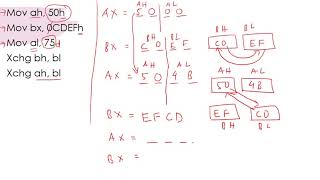 Mov ah, 50h
Mov bx, 0CDEFh
Mov al, 75h
Xchg bh, bl
Xchg ah, bl
AH AL
AX = 50 00
BH BL
BX = CD EF
AH AL
AX = 50 4B
BX = EFCD
AX = _ _ _ _.
BX =
BH BL
CD EF
AH AL
50 4B
EF CD
BH BL